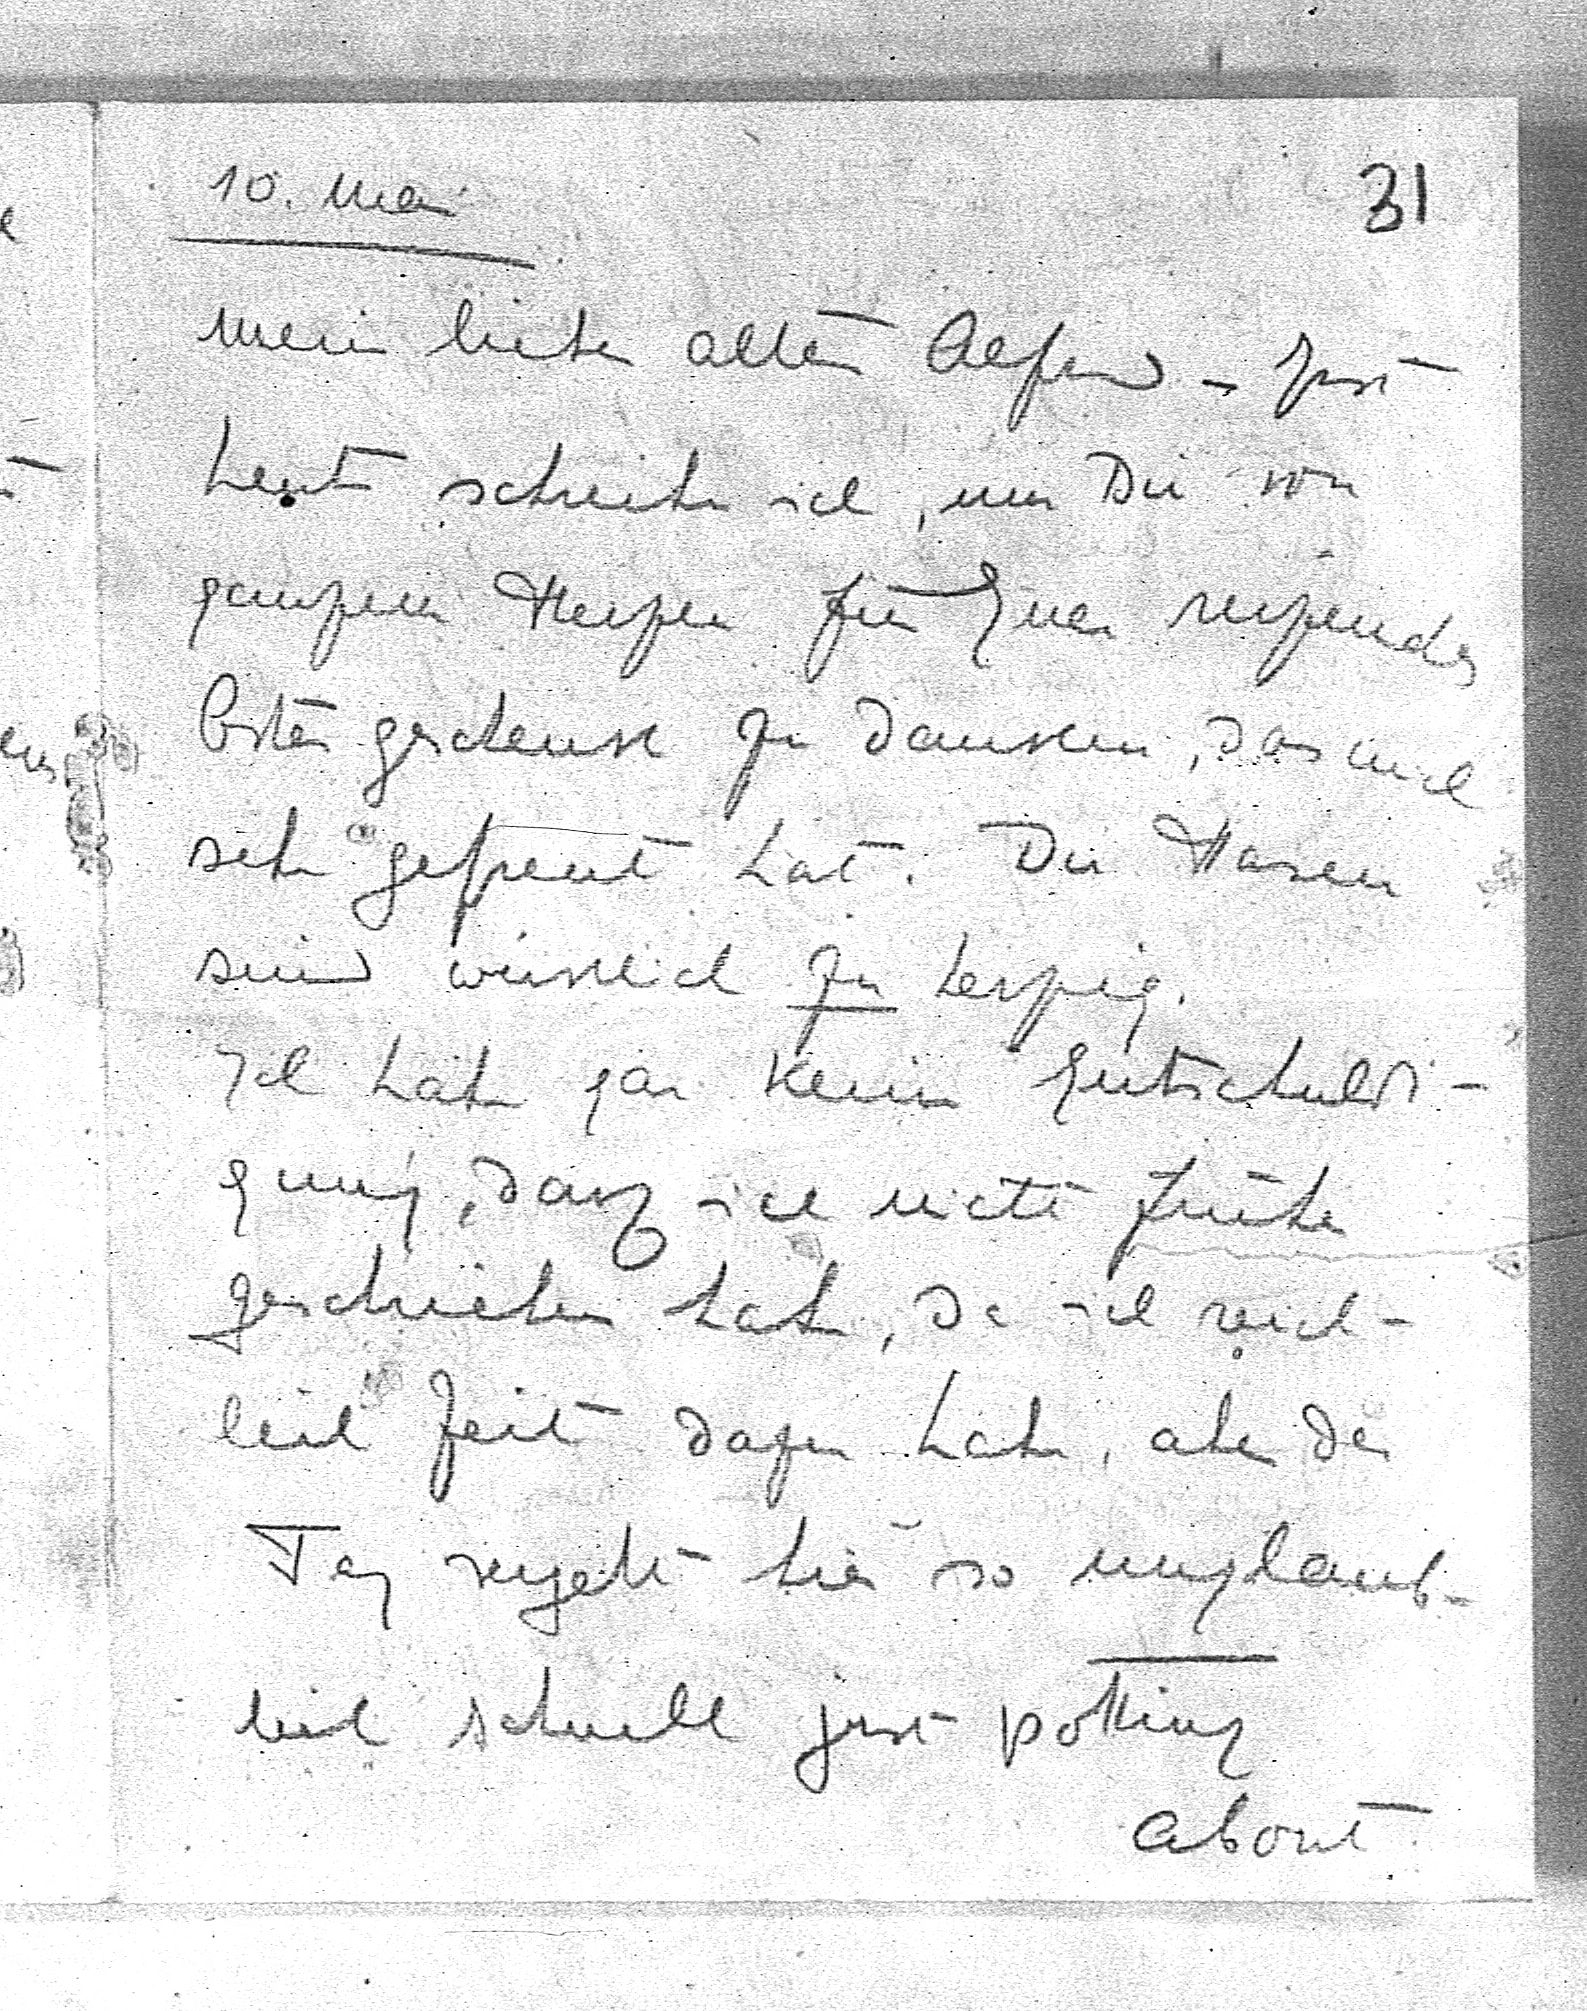 10. Mai
31
Mein lieber alter Alfred – Erst
heute schreibe ich, um Dir von
ganzem Herzen für Euer reizendes
Ostergeschenk zu danken, das mich
sehr gefreut hat. Die Hasen
sind wirklich zu herzig.
Ich habe gar keine Entschuldi-
gung, dasz ich nicht früher
geschrieben habe, da ich reich-
lich Zeit dazu habe, aber der
Tag vergeht hier so unglaub-
lich schnell just pottering
about